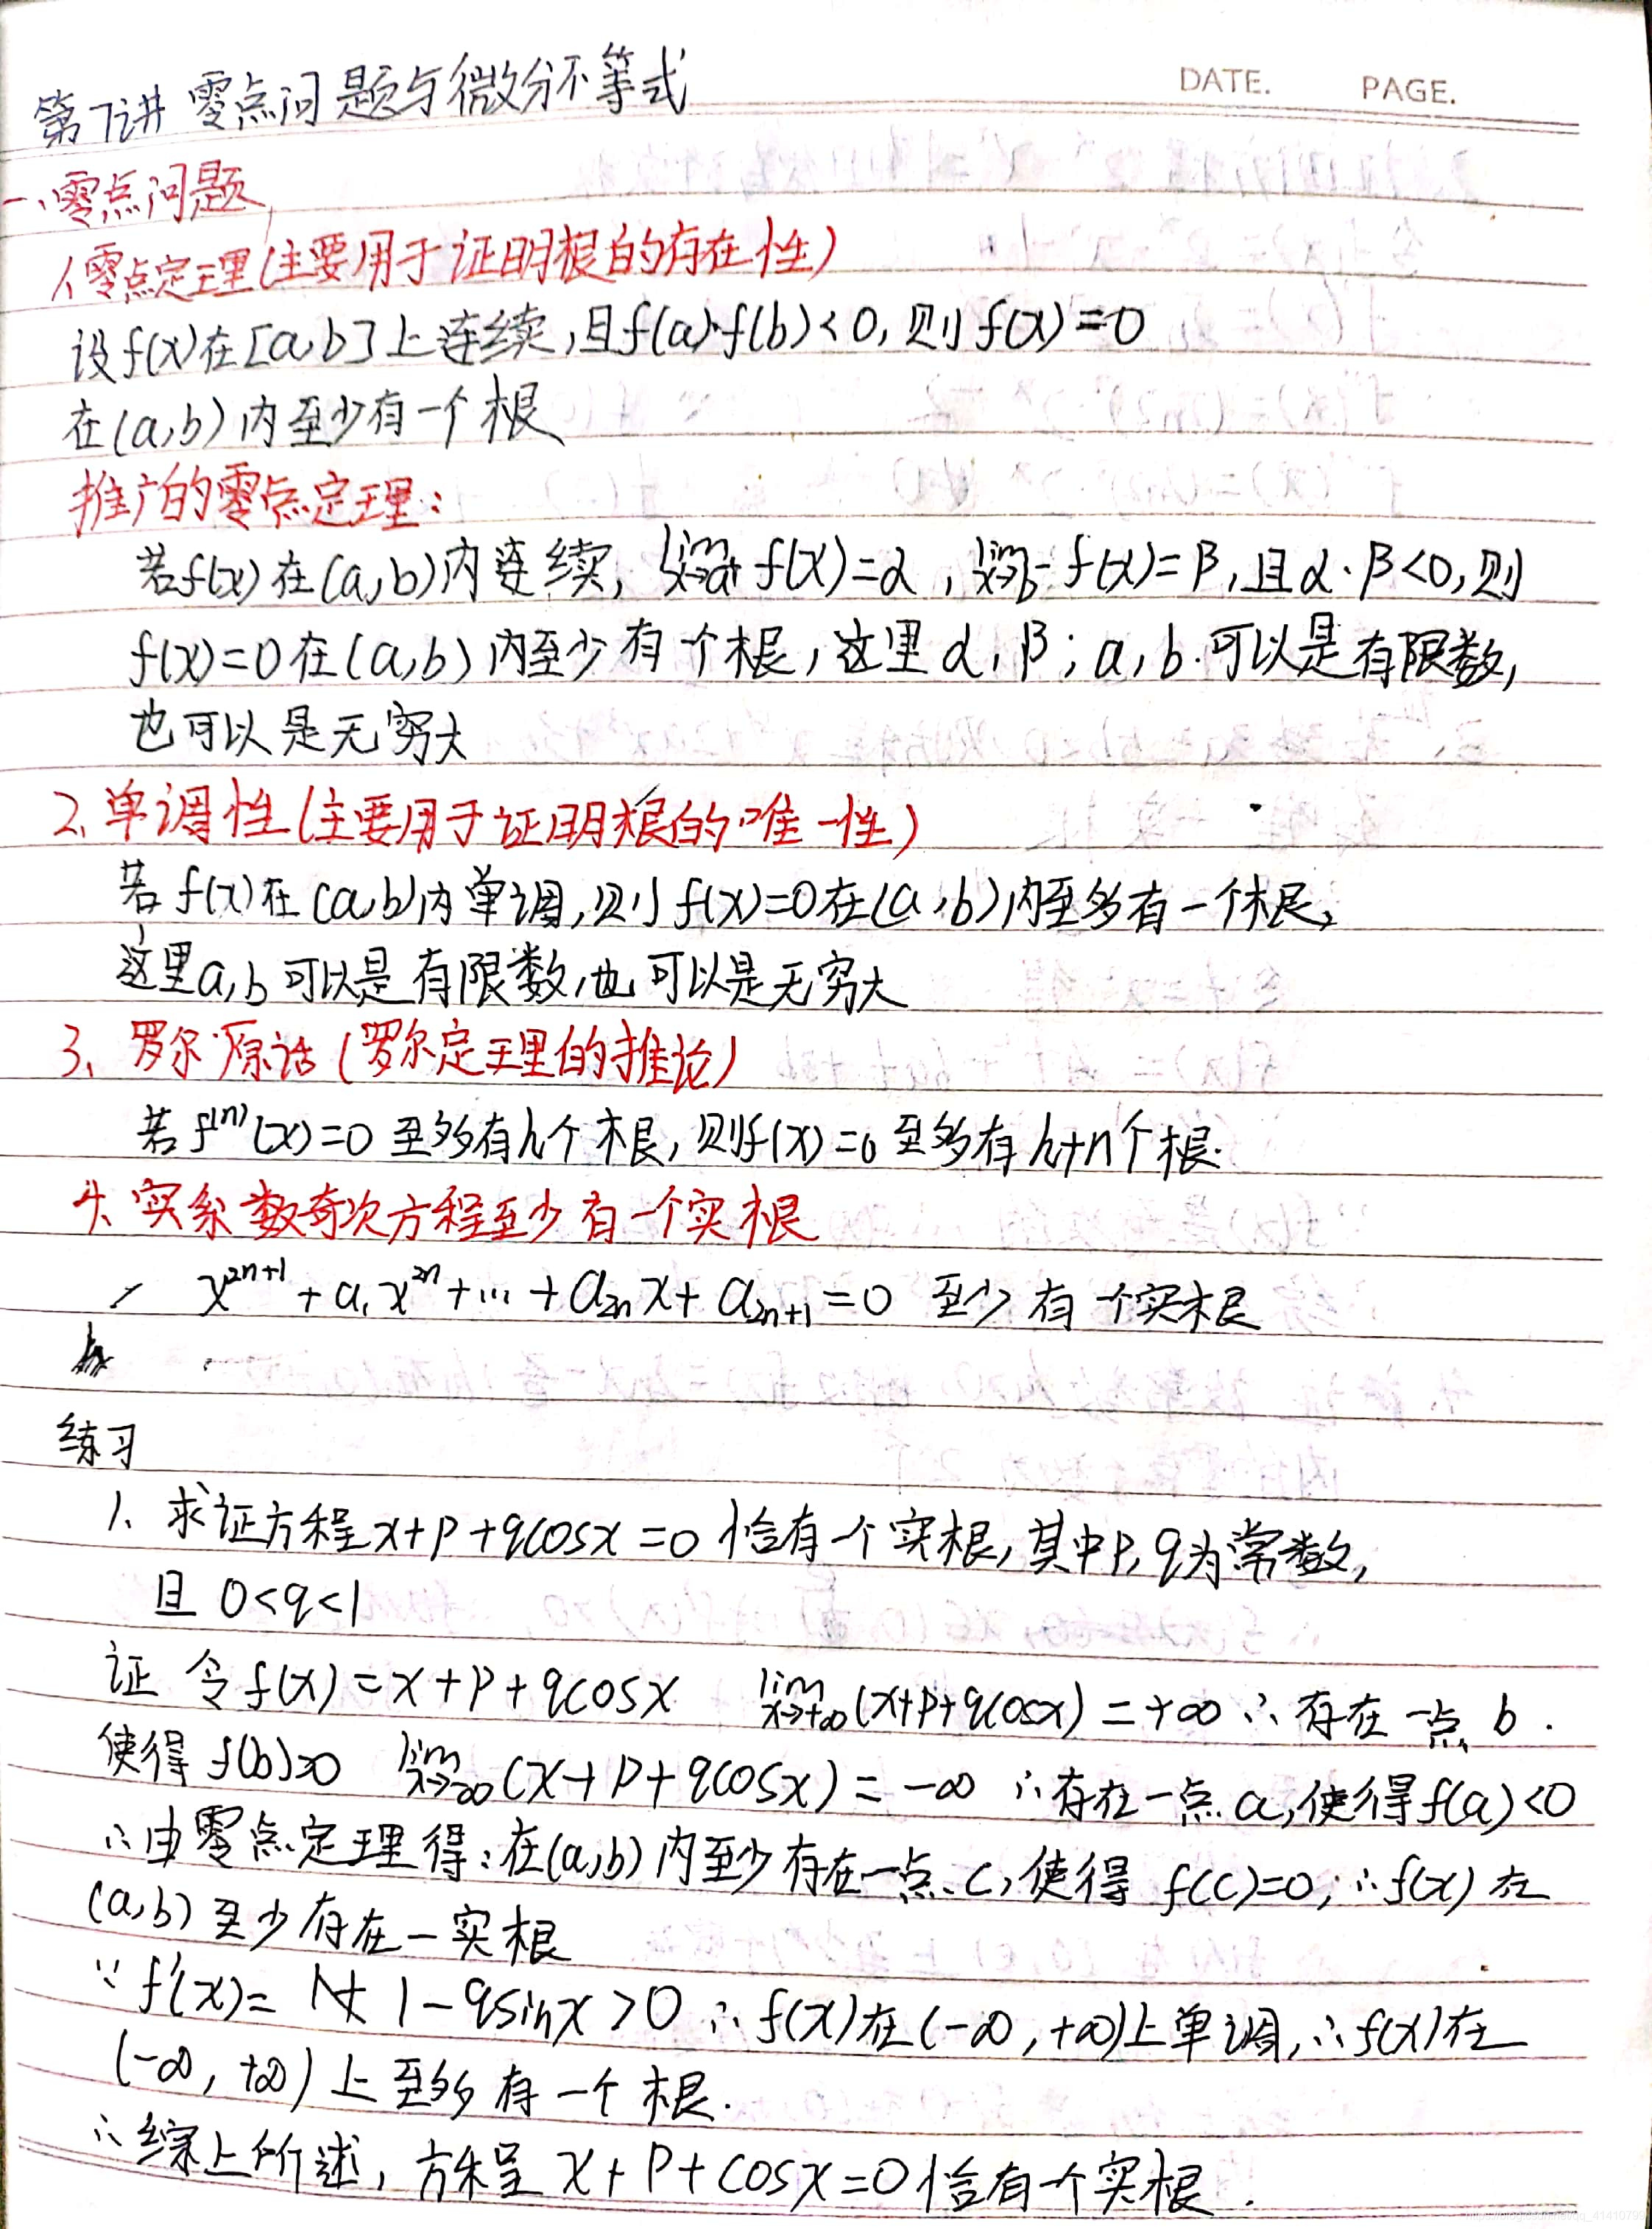 DATE. PAGE.
第7讲 零点问题与微分不等式
一、零点问题
1、零点定理(主要用于证明根的存在性)
设f(x)在[a,b]上连续,且f(a)·f(b)<0,则f(x)=0
在(a,b)内至少有一个根
推广的零点定理:
若f(x)在(a,b)内连续, lim x→a⁺ f(x)=α, lim x→b⁻ f(x)=β,且α·β<0,则
f(x)=0在(a,b)内至少有一个根,这里α,β;a,b.可以是有限数,
也可以是无穷大
2、单调性(主要用于证明根的唯一性)
若f(x)在(a,b)内单调,则f(x)=0在(a,b)内至多有一个根,
这里a,b可以是有限数,也可以是无穷大
3、罗尔原话(罗尔定理的推论)
若f⁽ⁿ⁾(x)=0至多有k个根,则f(x)=0至多有k+n个根.
4、实系数奇次方程至少有一个实根
x²ⁿ⁺¹+a₁x²ⁿ+…+a₂ₙx+a₂ₙ₊₁=0 至少有一个实根
练习
1、求证方程x+p+qcosx=0恰有一个实根,其中p,q为常数,
且0<q<1
证 令f(x)=x+p+qcosx lim x→+∞ (x+p+qcosx)=+∞ ∴存在一点b.
使得f(b)>0 lim x→-∞ (x+p+qcosx)=-∞ ∴存在一点a,使得f(a)<0
∴由零点定理得:在(a,b)内至少存在一点c,使得f(c)=0,∴f(x)在
(a,b)至少存在一实根
∵f'(x)= 1-qsinx>0 ∴f(x)在(-∞,+∞)上单调,∴f(x)在
(-∞,+∞)上至多有一个根.
∴综上所述,方程x+p+cosx=0恰有一个实根.